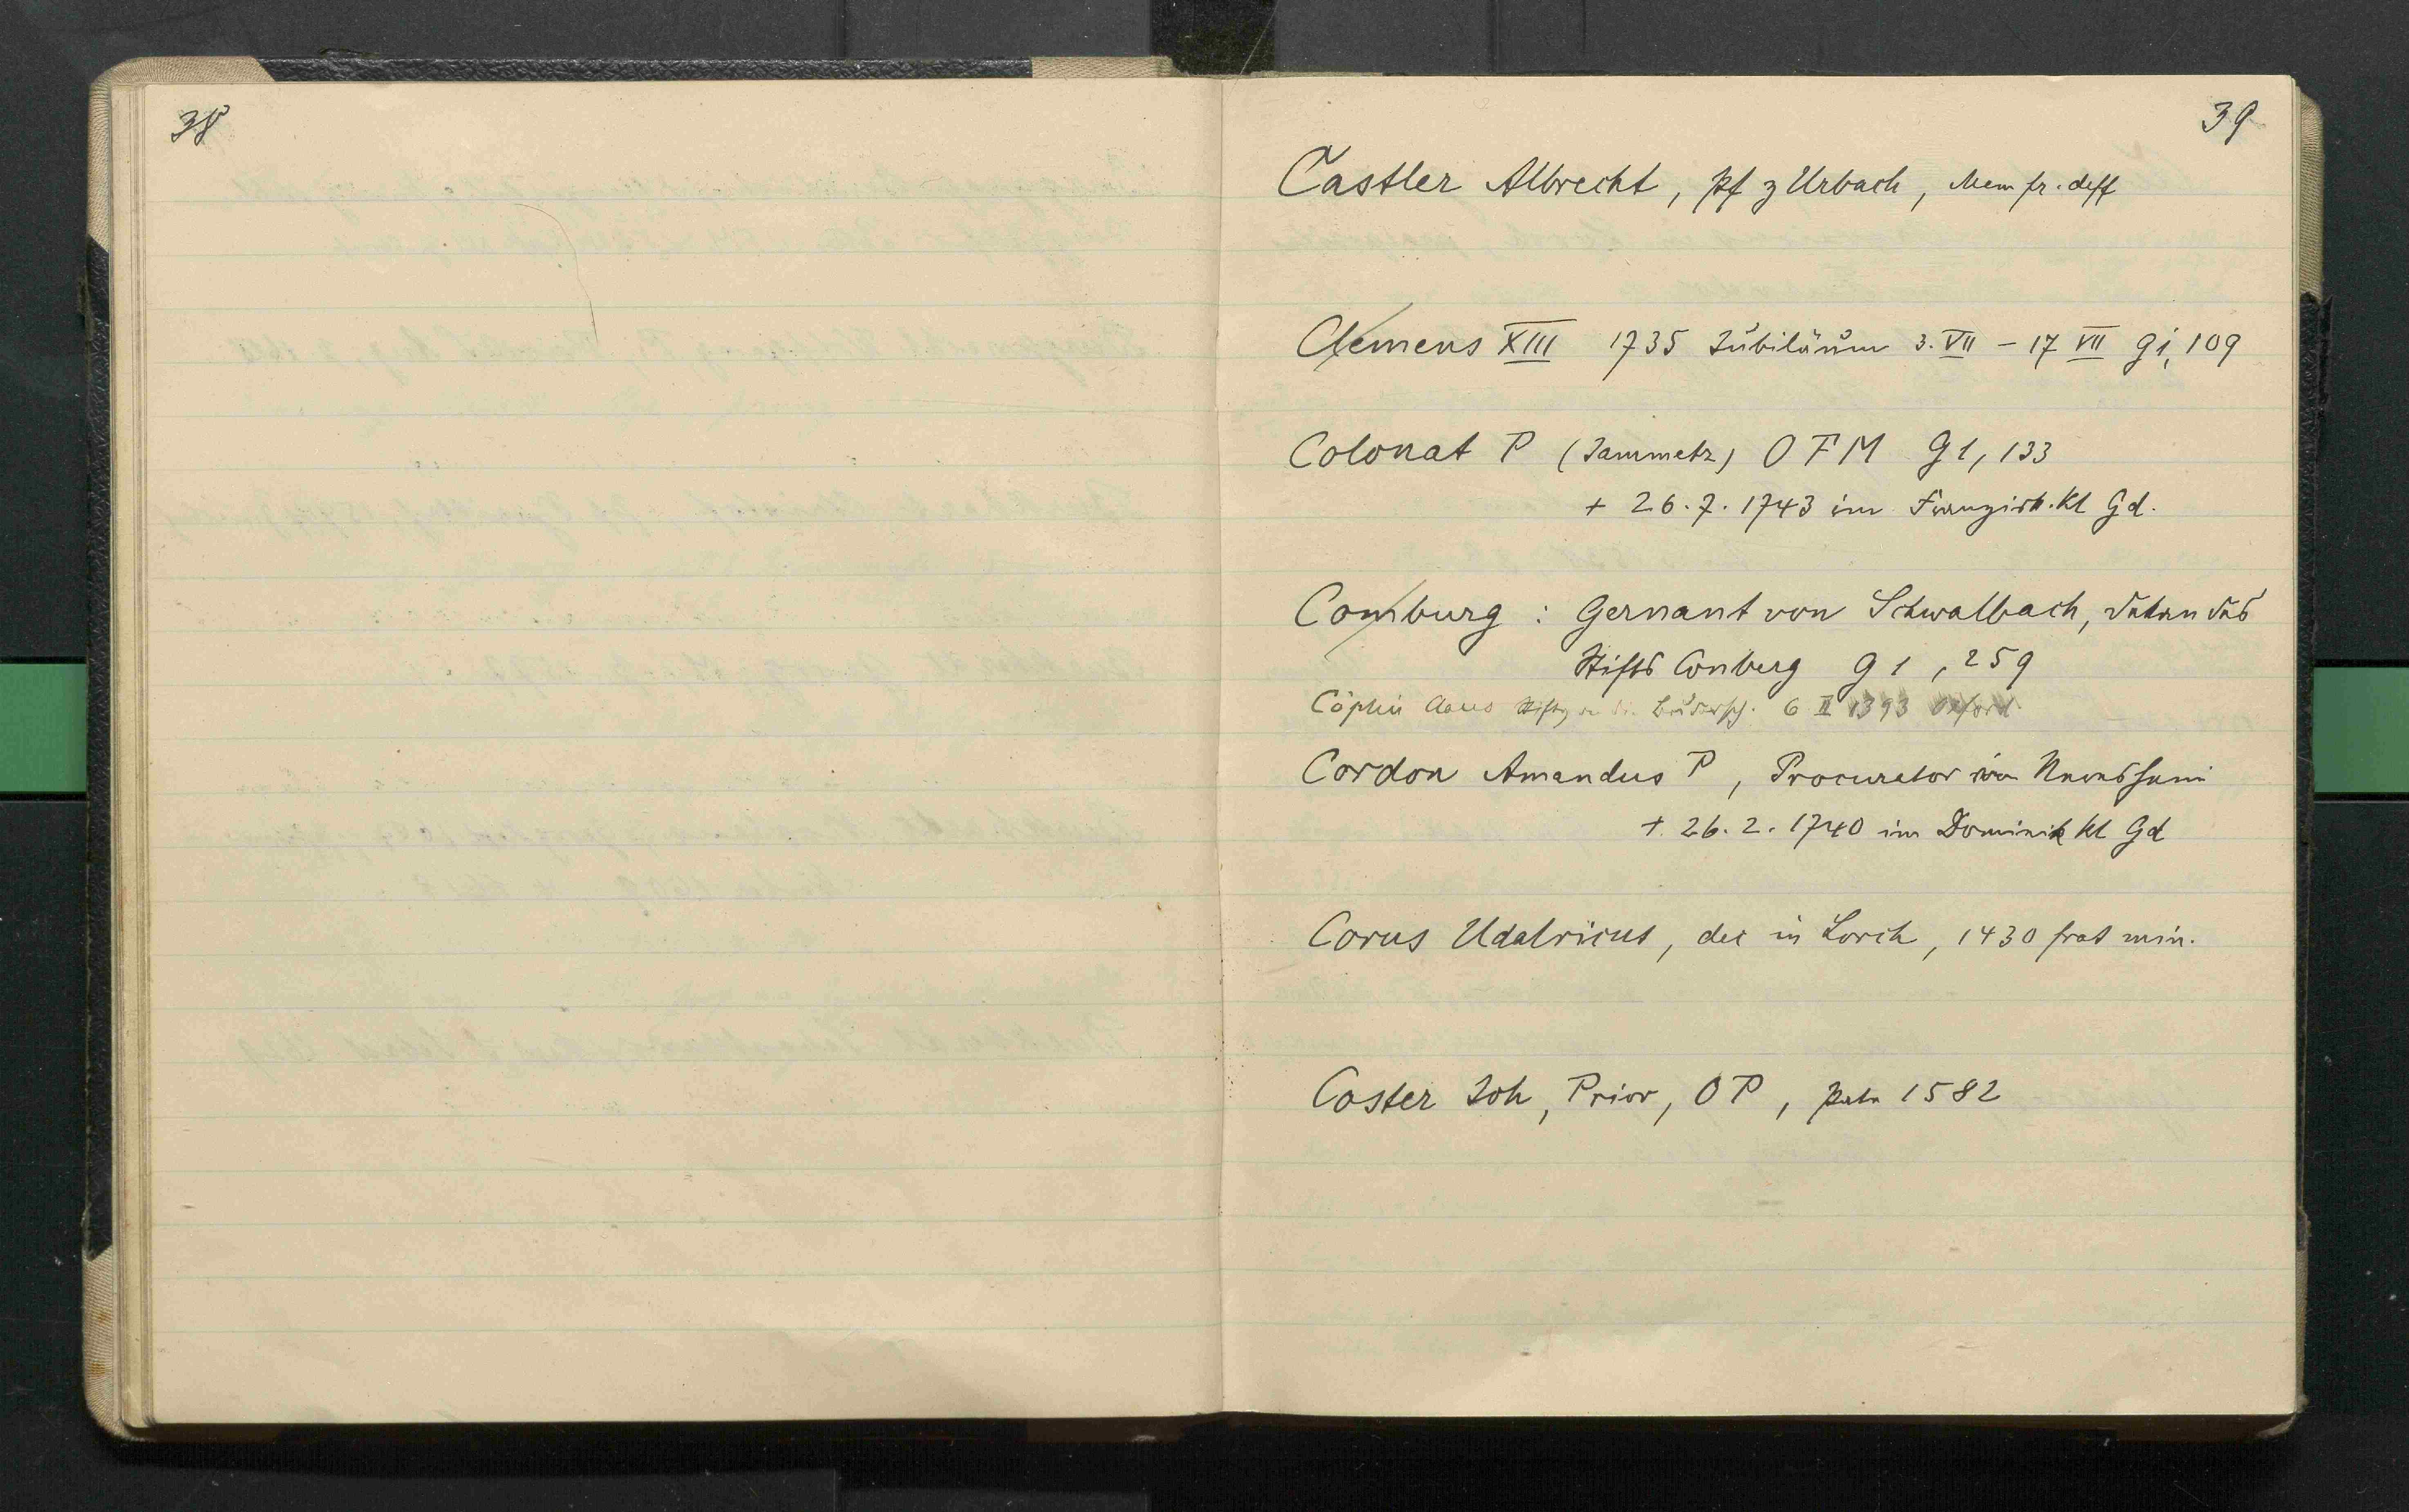 38
39
Castler Albrecht, Pf z Urbach, Mem fr. deff
Clemens XIII 1735 Jubiläum 3. VII - 17 VII G i, 109
Colonat P (Jammetz) OFM G 1, 133
+ 26. 7. 1743 im Franzisk. Kl Gd.
Comburg : Gernant von Schwalbach, Dekan des
Stifts Comberg G 1, 259
Cöplin 6 II 1393
Cordon Amandus P, Procurator von
+. 26. 2. 1740 im Dominik Kl Gd
Corus Udalricus, dec in Lorch, 1430 frat min.
Coster Joh, Prior, OP, 1582